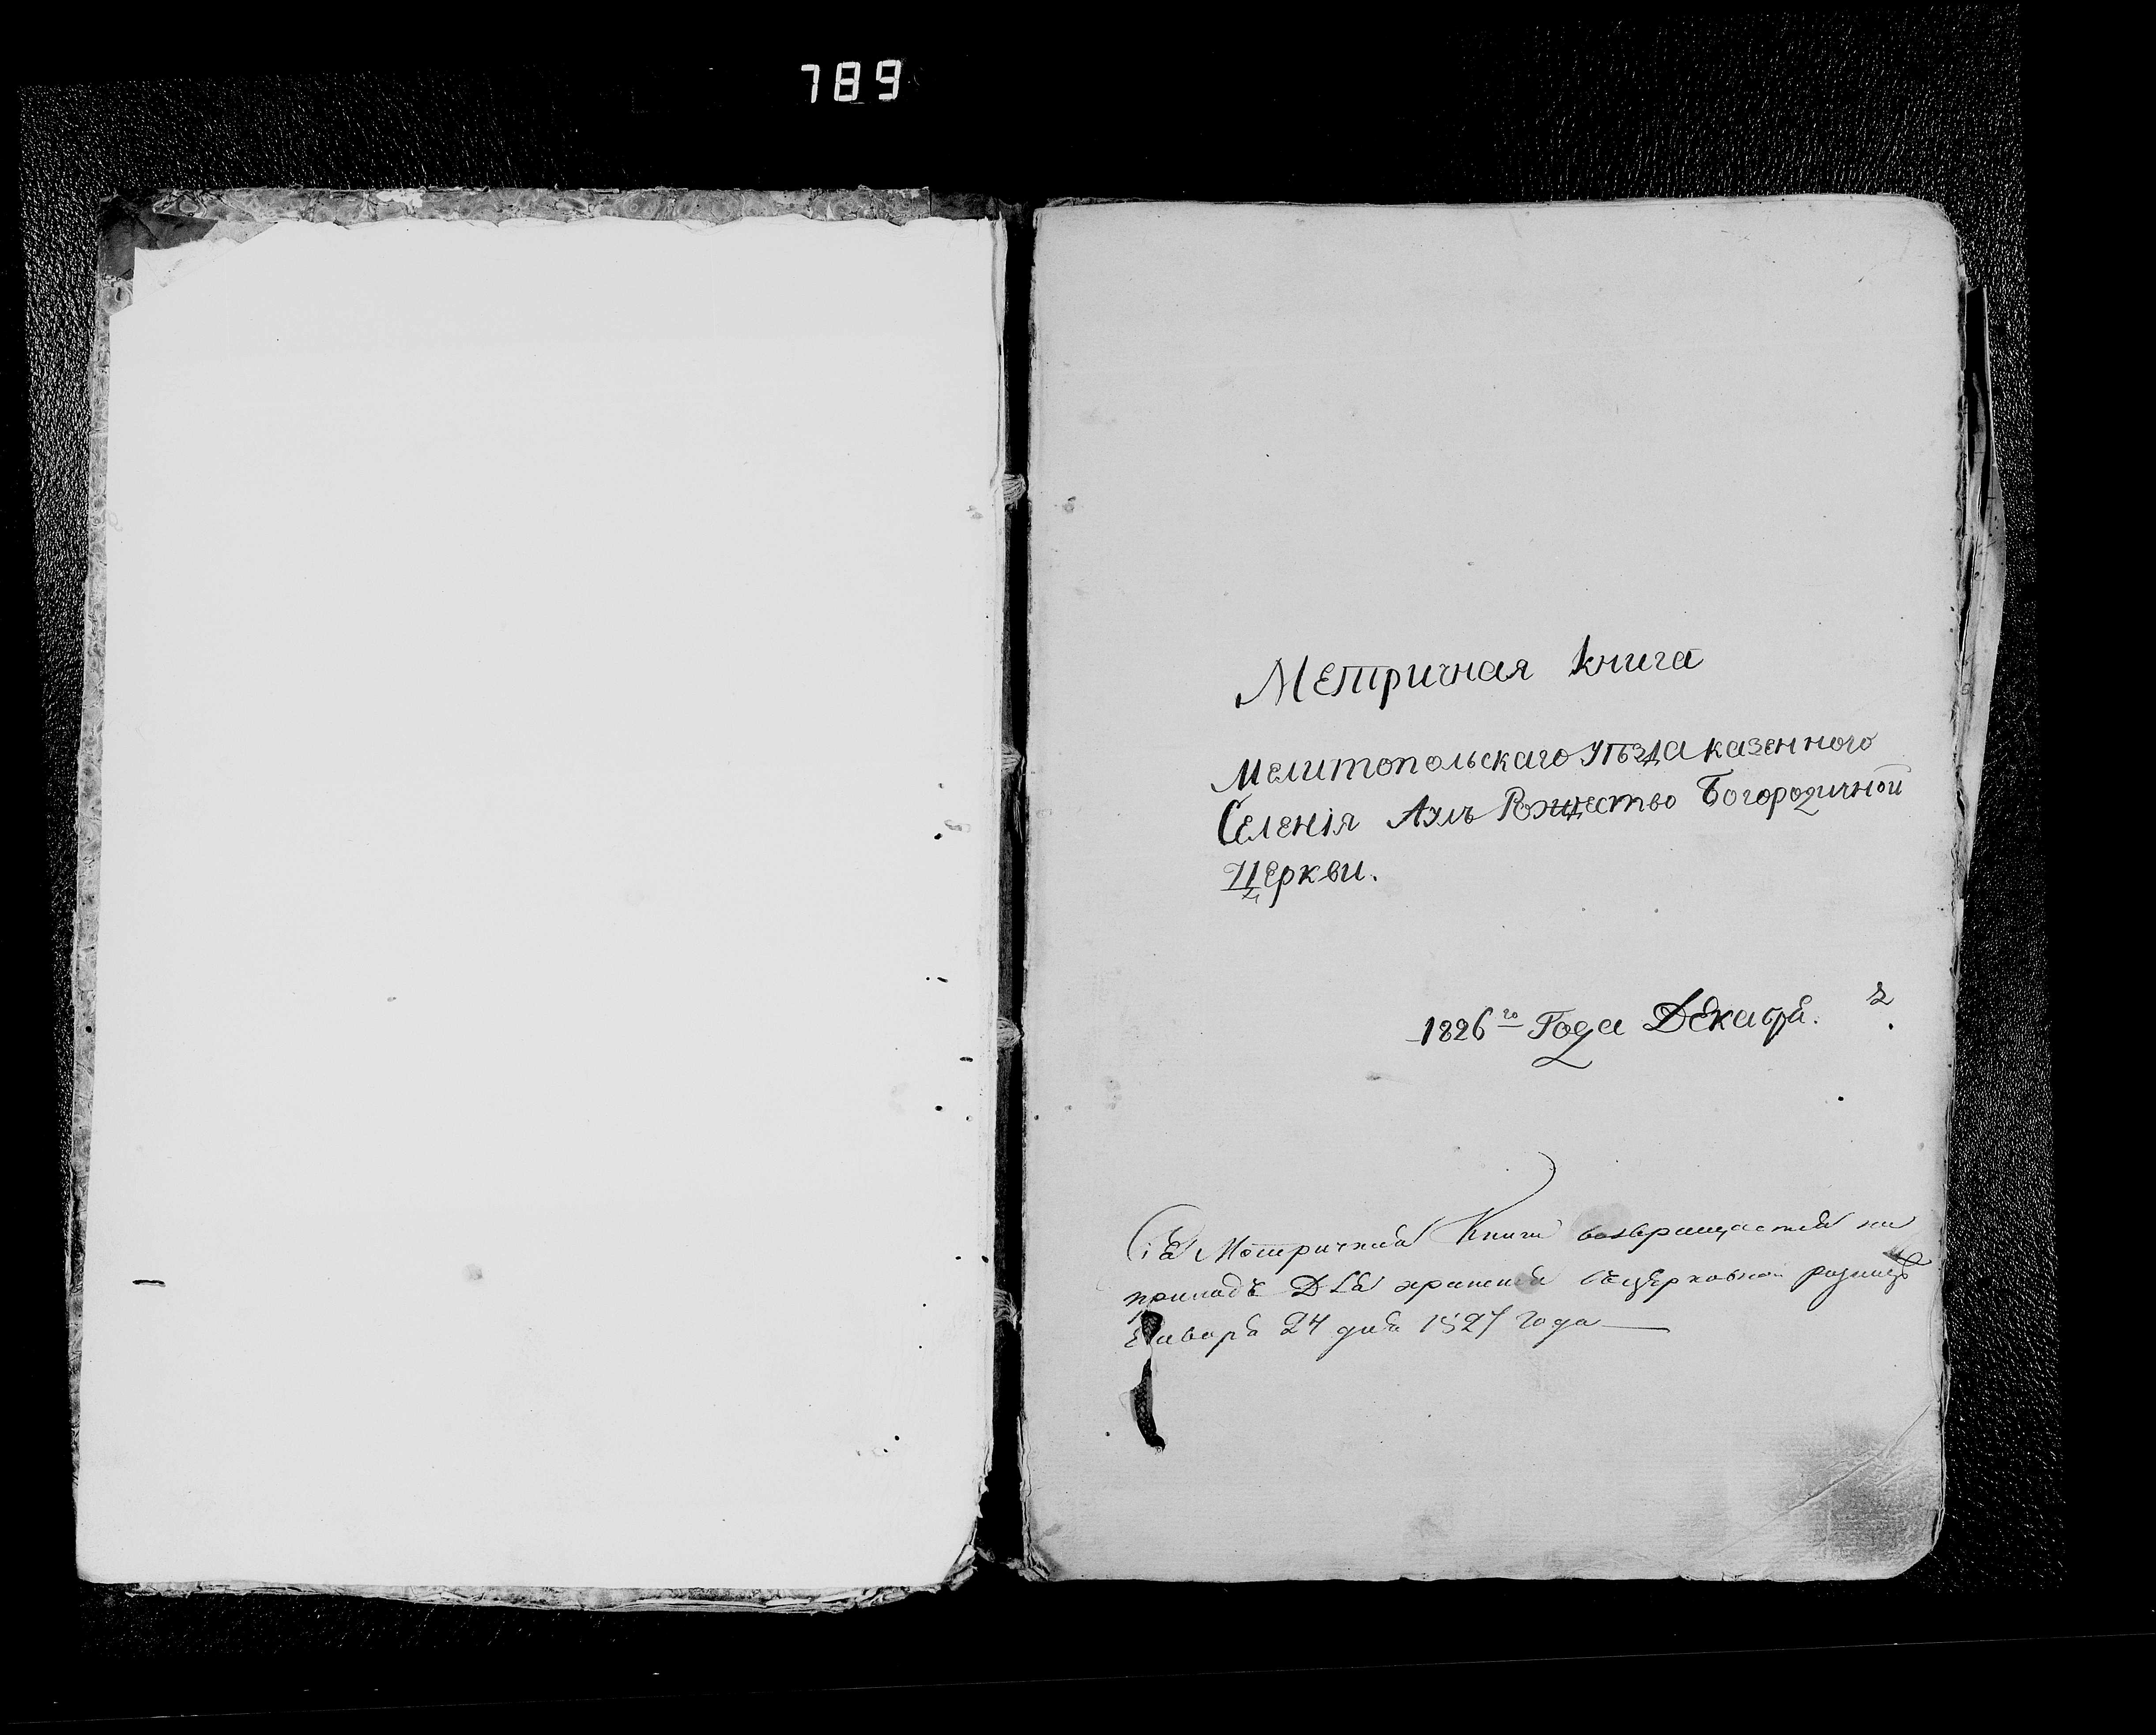 789
Метричная книга
Мелитопольскаго Уѣзда казенного
Селенія Аулъ Рождество Богородичной
Церкви.
1826го Года Декабря.
Сія Метричная Книга возвращается на
приходъ для хранения церковной ризницѣ
Января 24 дня 1827 года